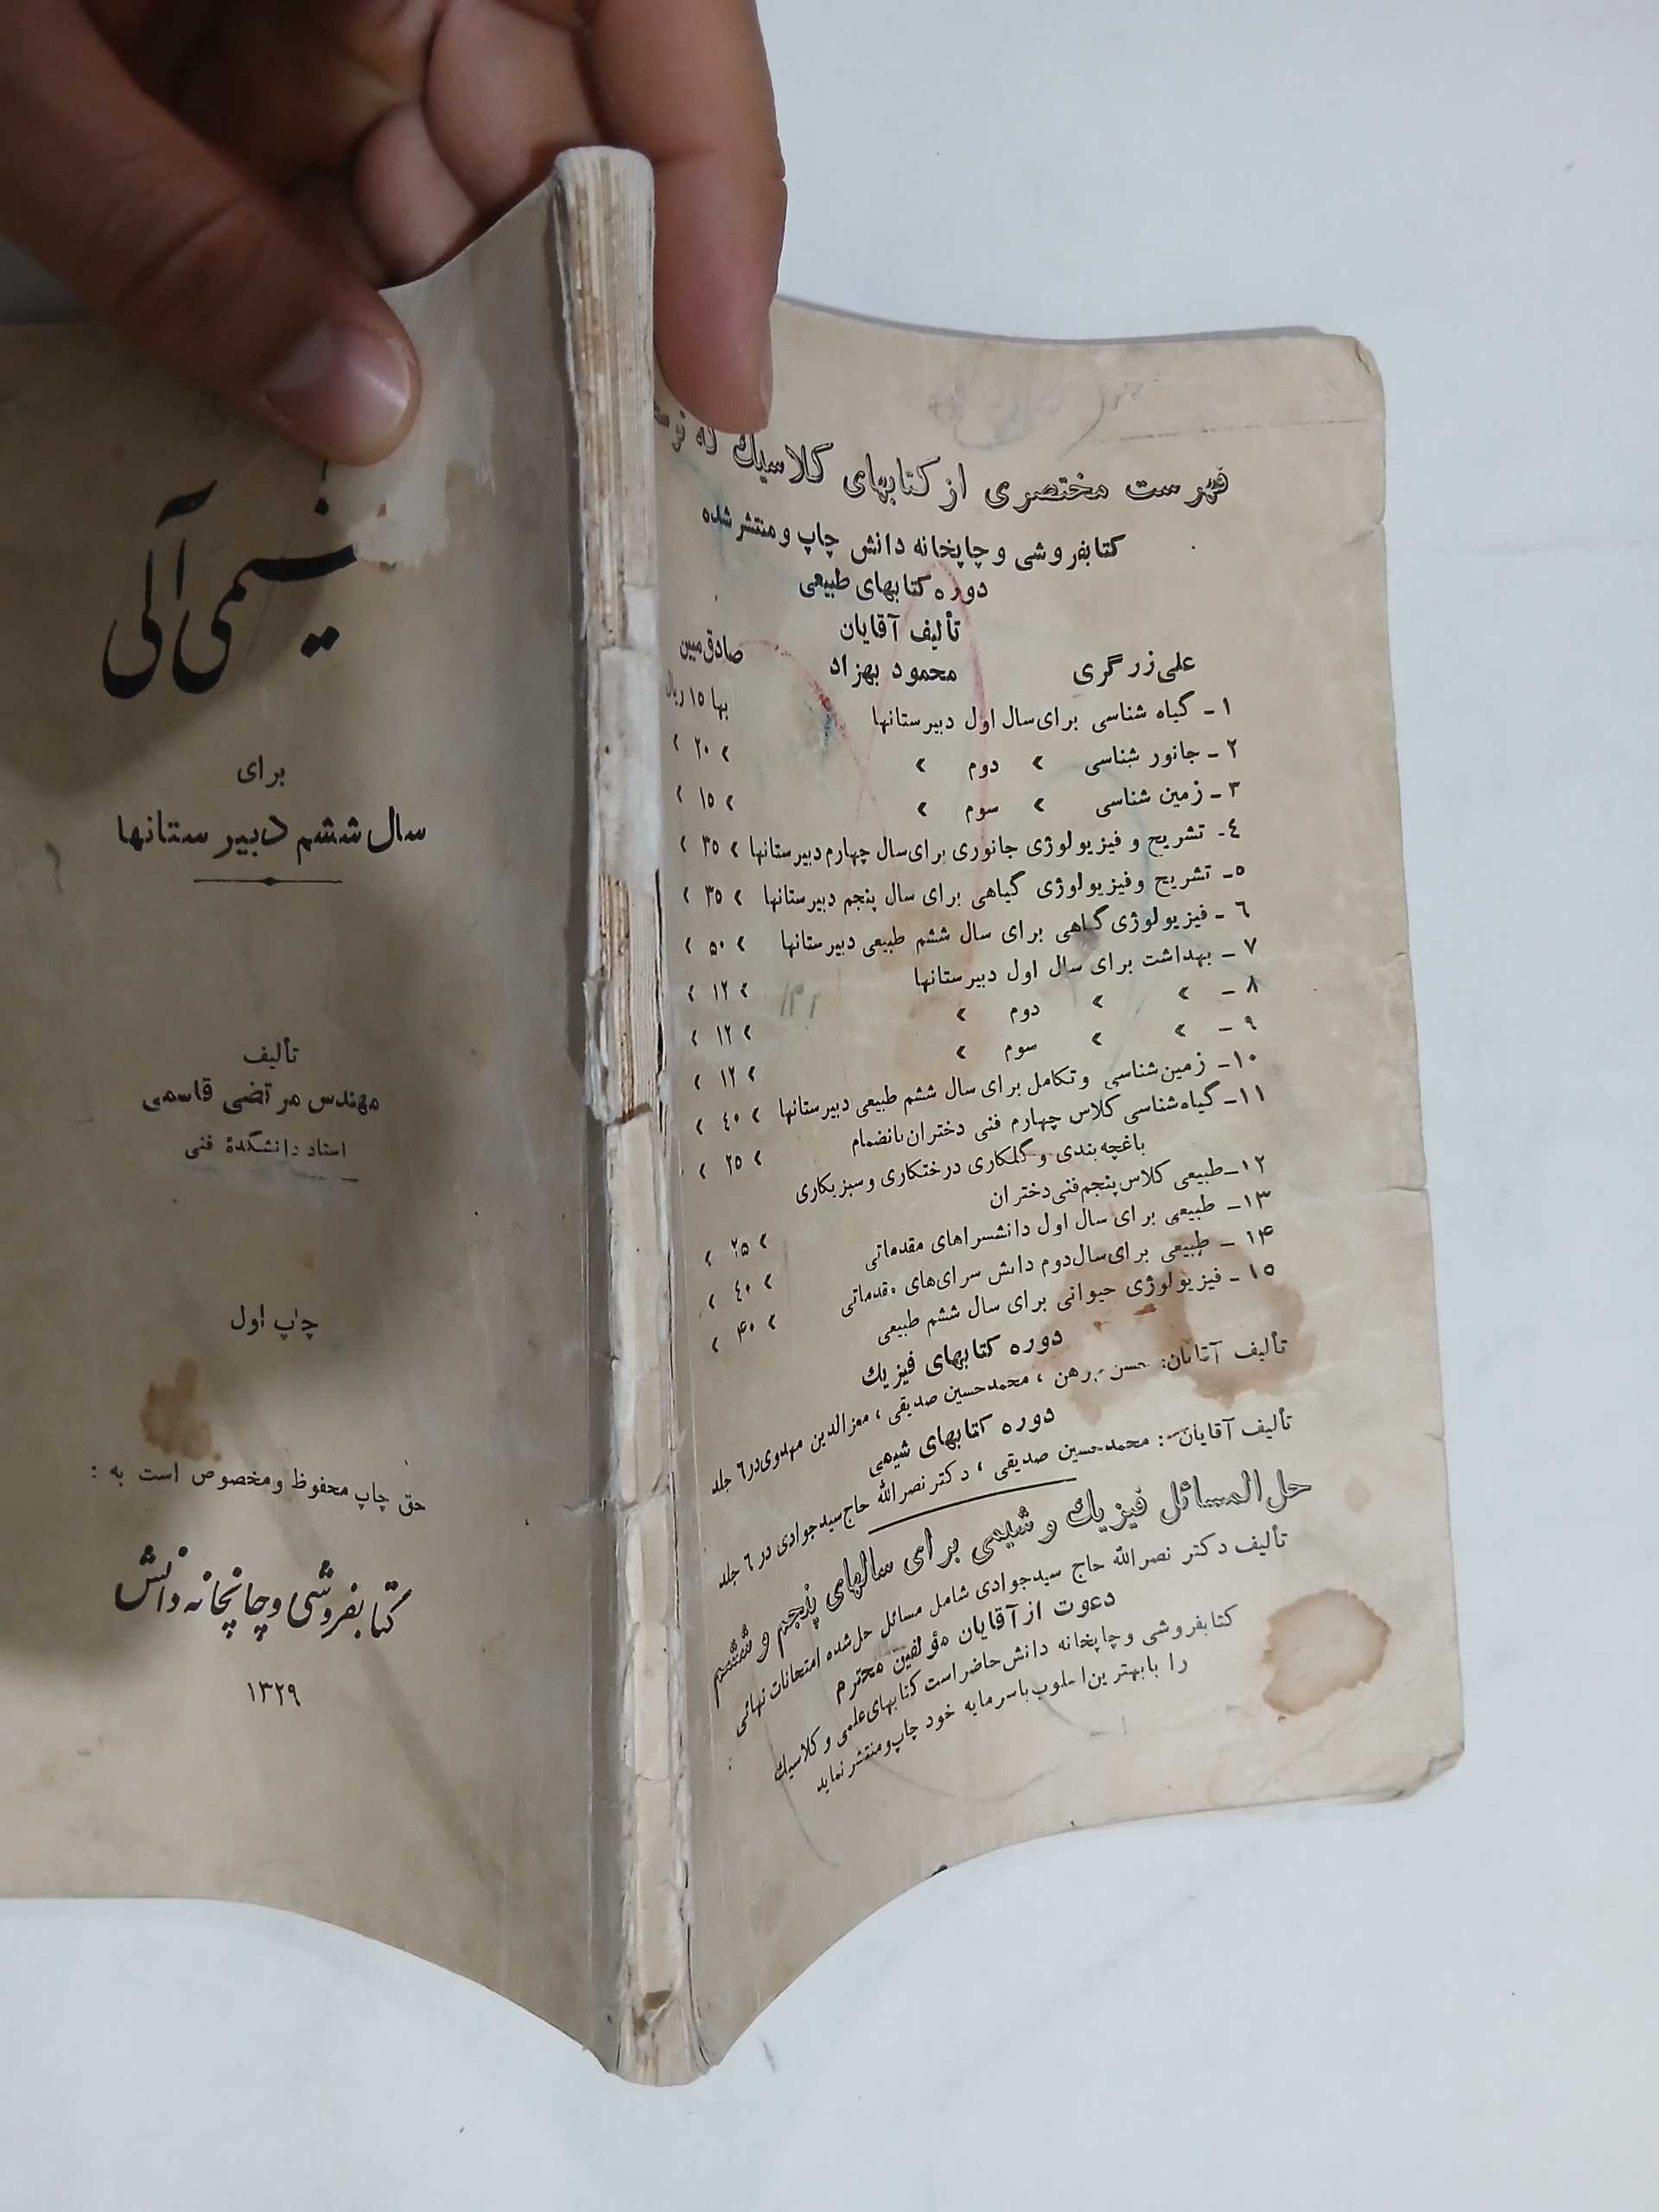 شیمی آلی
برای
سال ششم دبیرستانها
تألیف
مهندس مرتضی قاسمی
استاد دانشگدهٔ فنی
چاپ اول
حق چاپ محفوظ ومخصوص است به :
کتابفروشی وچاپخانه دانش
۱۳۲۹
فهرست مختصری از کتابهای کلاسیک که توسط
کتابفروشی و چاپخانه دانش چاپ و منتشر شده
دوره کتابهای طبیعی
تألیف آقایان
علی زرگری محمود بهزاد صادق مبین
۱ - گیاه شناسی برای سال اول دبیرستانها بها ۱۵ ریال
۲ - جانور شناسی » دوم » » ۲۰ »
۳ - زمین شناسی » سوم » » ۱۵ »
٤- تشریح و فیزیولوژی جانوری برای سال چهارم دبیرستانها » ۳۵ »
۵- تشریح وفیزیولوژی گیاهی برای سال پنجم دبیرستانها » ۳۵ »
٦ - فیزیولوژی گیاهی برای سال ششم طبیعی دبیرستانها » ۵۰ »
۷ - بهداشت برای سال اول دبیرستانها » ۱۲ »
۸ - » » دوم » » ۱۲ »
۹ - » » سوم » » ۱۲ »
۱۰- زمین شناسی وتکامل برای سال ششم طبیعی دبیرستانها » ٤۰ »
۱۱- گیاه شناسی کلاس چهارم فنی دختران بانضمام » ۲۵ »
باغچه بندی و گلمکاری درختکاری و سبزیکاری
۱۲-طبیعی کلاس پنجم فنی دختران
۱۳- طبیعی برای سال اول دانشسراهای مقدماتی » ۲۵ »
۱۴ - طبیعی برای سال دوم دانش سرای‌های مقدماتی » ٤۰ »
۱۵ - فیزیولوژی حیوانی برای سال ششم طبیعی » ۴۰ »
دوره کتابهای فیزیک
تألیف آقایان: حسن ، محمدحسین صدیقی ، معزالدین مهدوی در ٦ جلد
دوره کتابهای شیمی
تألیف آقایان : محمدحسین صدیقی ، دکتر نصرالله حاج سیدجوادی در ٦ جلد
حل المسائل فیزیک و شیمی برای سالهای پنجم و ششم
تألیف دکتر نصرالله حاج سیدجوادی شامل مسائل حل شده امتحانات نهائی
دعوت از آقایان مؤلفین محترم
کتابفروشی وچاپخانه دانش حاضر است کتابهای علمی و کلاسیک
را بابهترین اسلوب باسرمایه خود چاپ ومنتشر نماید